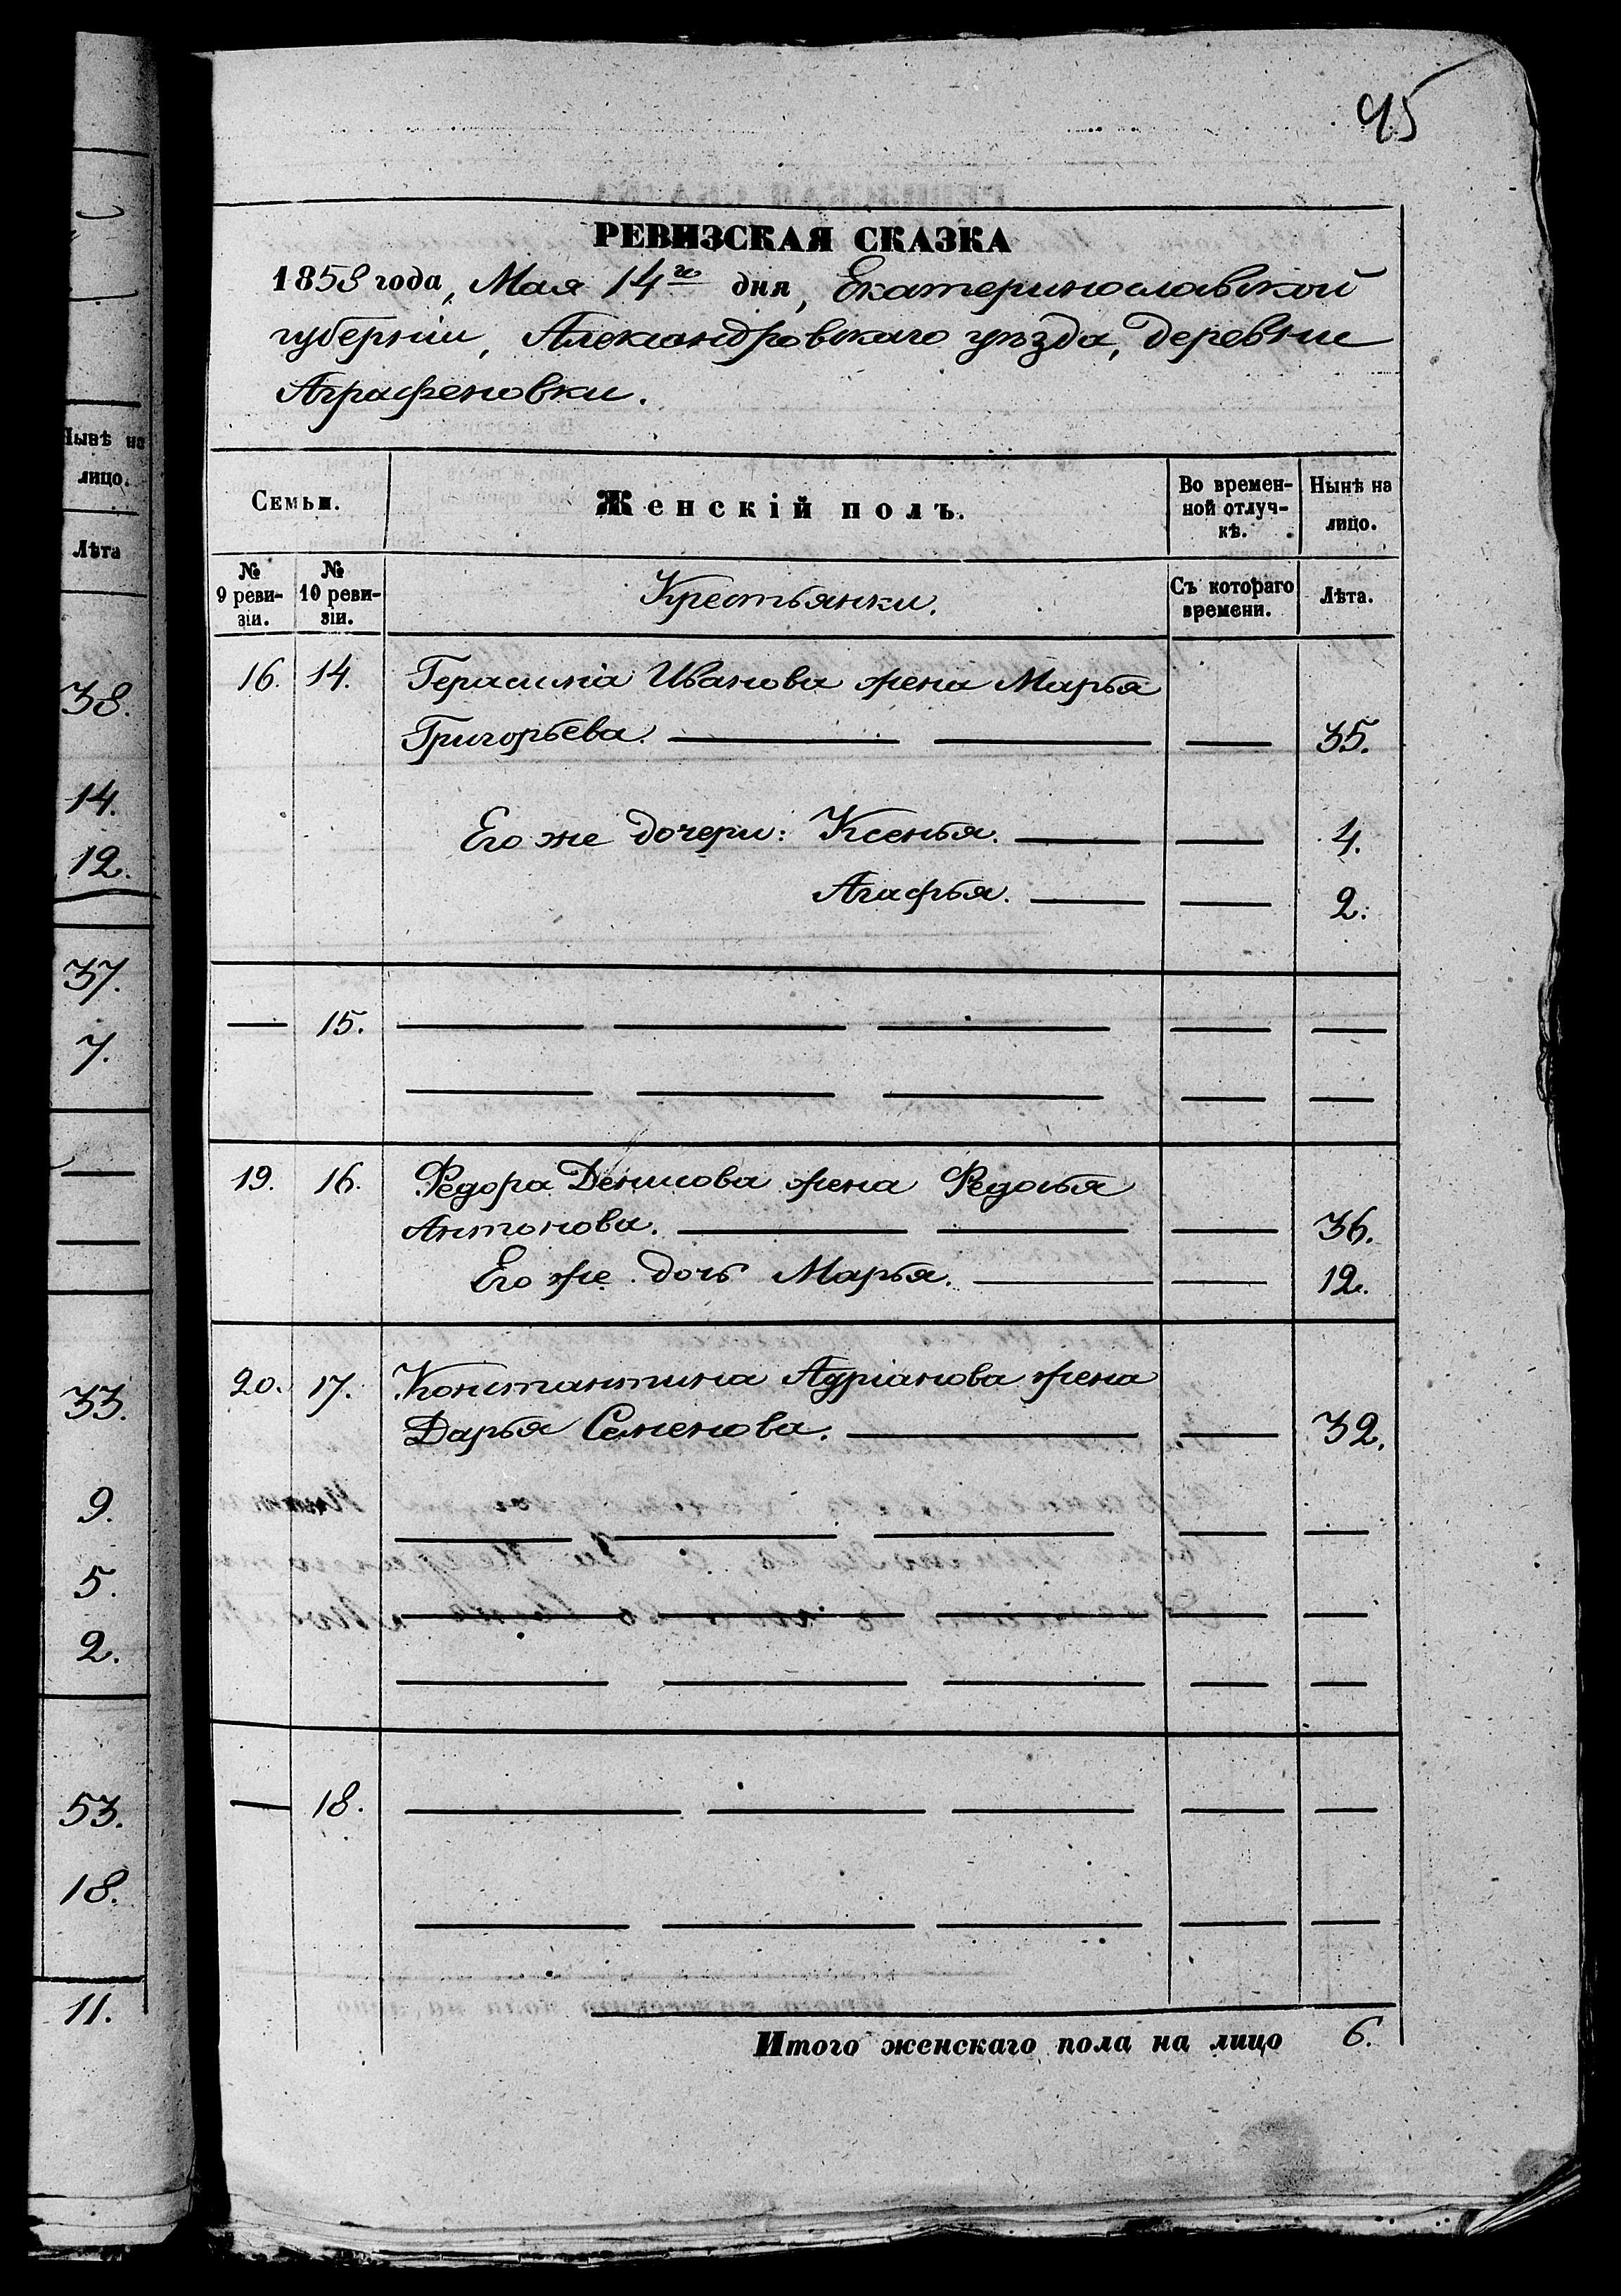 95
РЕВИЗСКАЯ СКАЗКА
1858 года, Мая 14го дня, Екатеринославской
губерніи, Александровскаго уѣзда, деревни
Аграфеновки.
Нынѣ на
лицо.
Лѣта
38.
14.
12.
37.
7.
33.
9.
5.
2.
53.
18.
11.
Семьи. Женскій полъ. Во времен- Нынѣ на
ной отлуч- лицо.
кѣ.
№ № Крестьянки. Съ котораго Лѣта.
9 реви- 10 реви- времени.
зіи. зіи.
16. 14. Герасима Иванова жена Марья
Григорьева. 35.
Его же дочери: Ксенья. 4.
Агафья. 2.
— 15.
19. 16. Федора Денисова жена Федосья
Антонова. 36.
Его же дочь Марья. 12.
20. 17. Константина Адріанова жена
Дарья Семенова. 32.
— 18.
Итого женскаго пола на лицо 6.